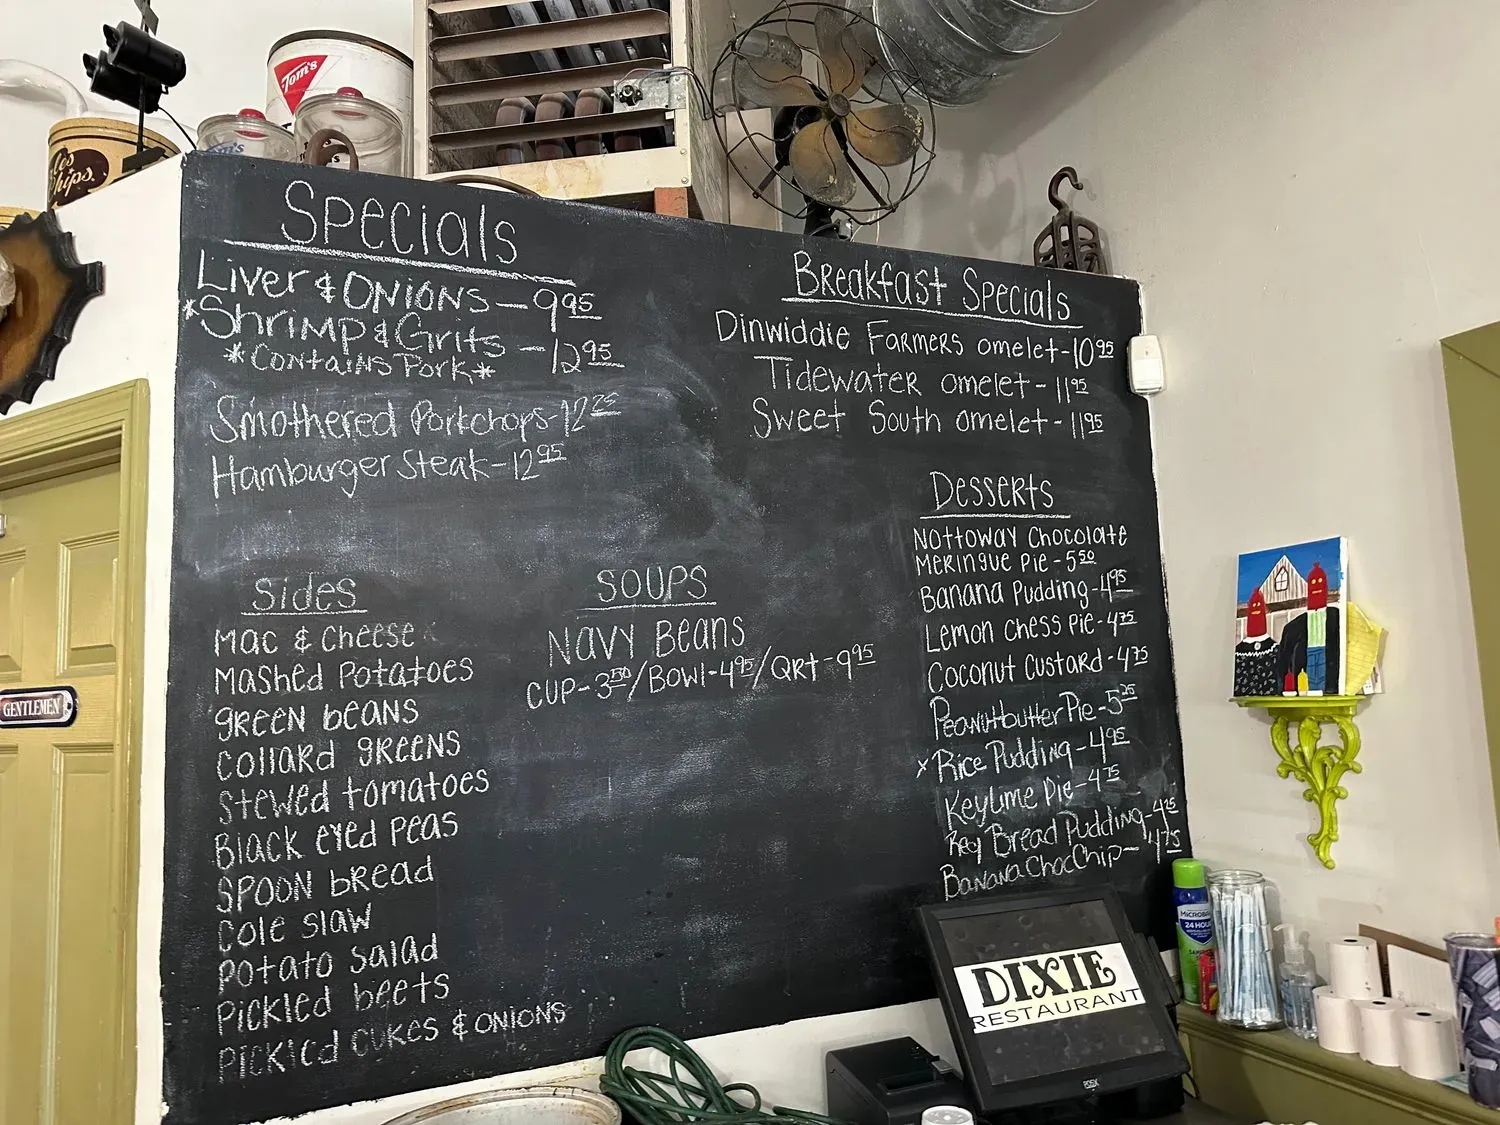 Tom's
Tom's
les
Chips
Specials
Liver & Onions — 9.95
*Shrimp & Grits — 12.95
*Contains Pork*
Smothered Porkchops - 12.25
Hamburger Steak - 12.95
Breakfast Specials
Dinwiddie Farmers omelet - 10.95
Tidewater omelet - 11.95
Sweet South omelet - 11.95
Sides
Mac & cheese
Mashed Potatoes
green beans
collard greens
stewed tomatoes
Black eyed peas
Spoon bread
cole slaw
potato salad
pickled beets
pickled cukes & onions
Soups
Navy Beans
Cup - 3.50 / Bowl - 4.95 / Qrt - 9.95
Desserts
Nottoway Chocolate
Meringue Pie - 5.50
Banana Pudding - 4.95
Lemon Chess Pie - 4.75
Coconut Custard - 4.75
Peanutbutter Pie - 5.25
x Rice Pudding - 4.95
Key Lime Pie - 4.75
Bread Pudding - 4.25
Banana ChocChip - 4.75
GENTLEMEN
MICROBAN
24 HOUR
DIXIE
RESTAURANT